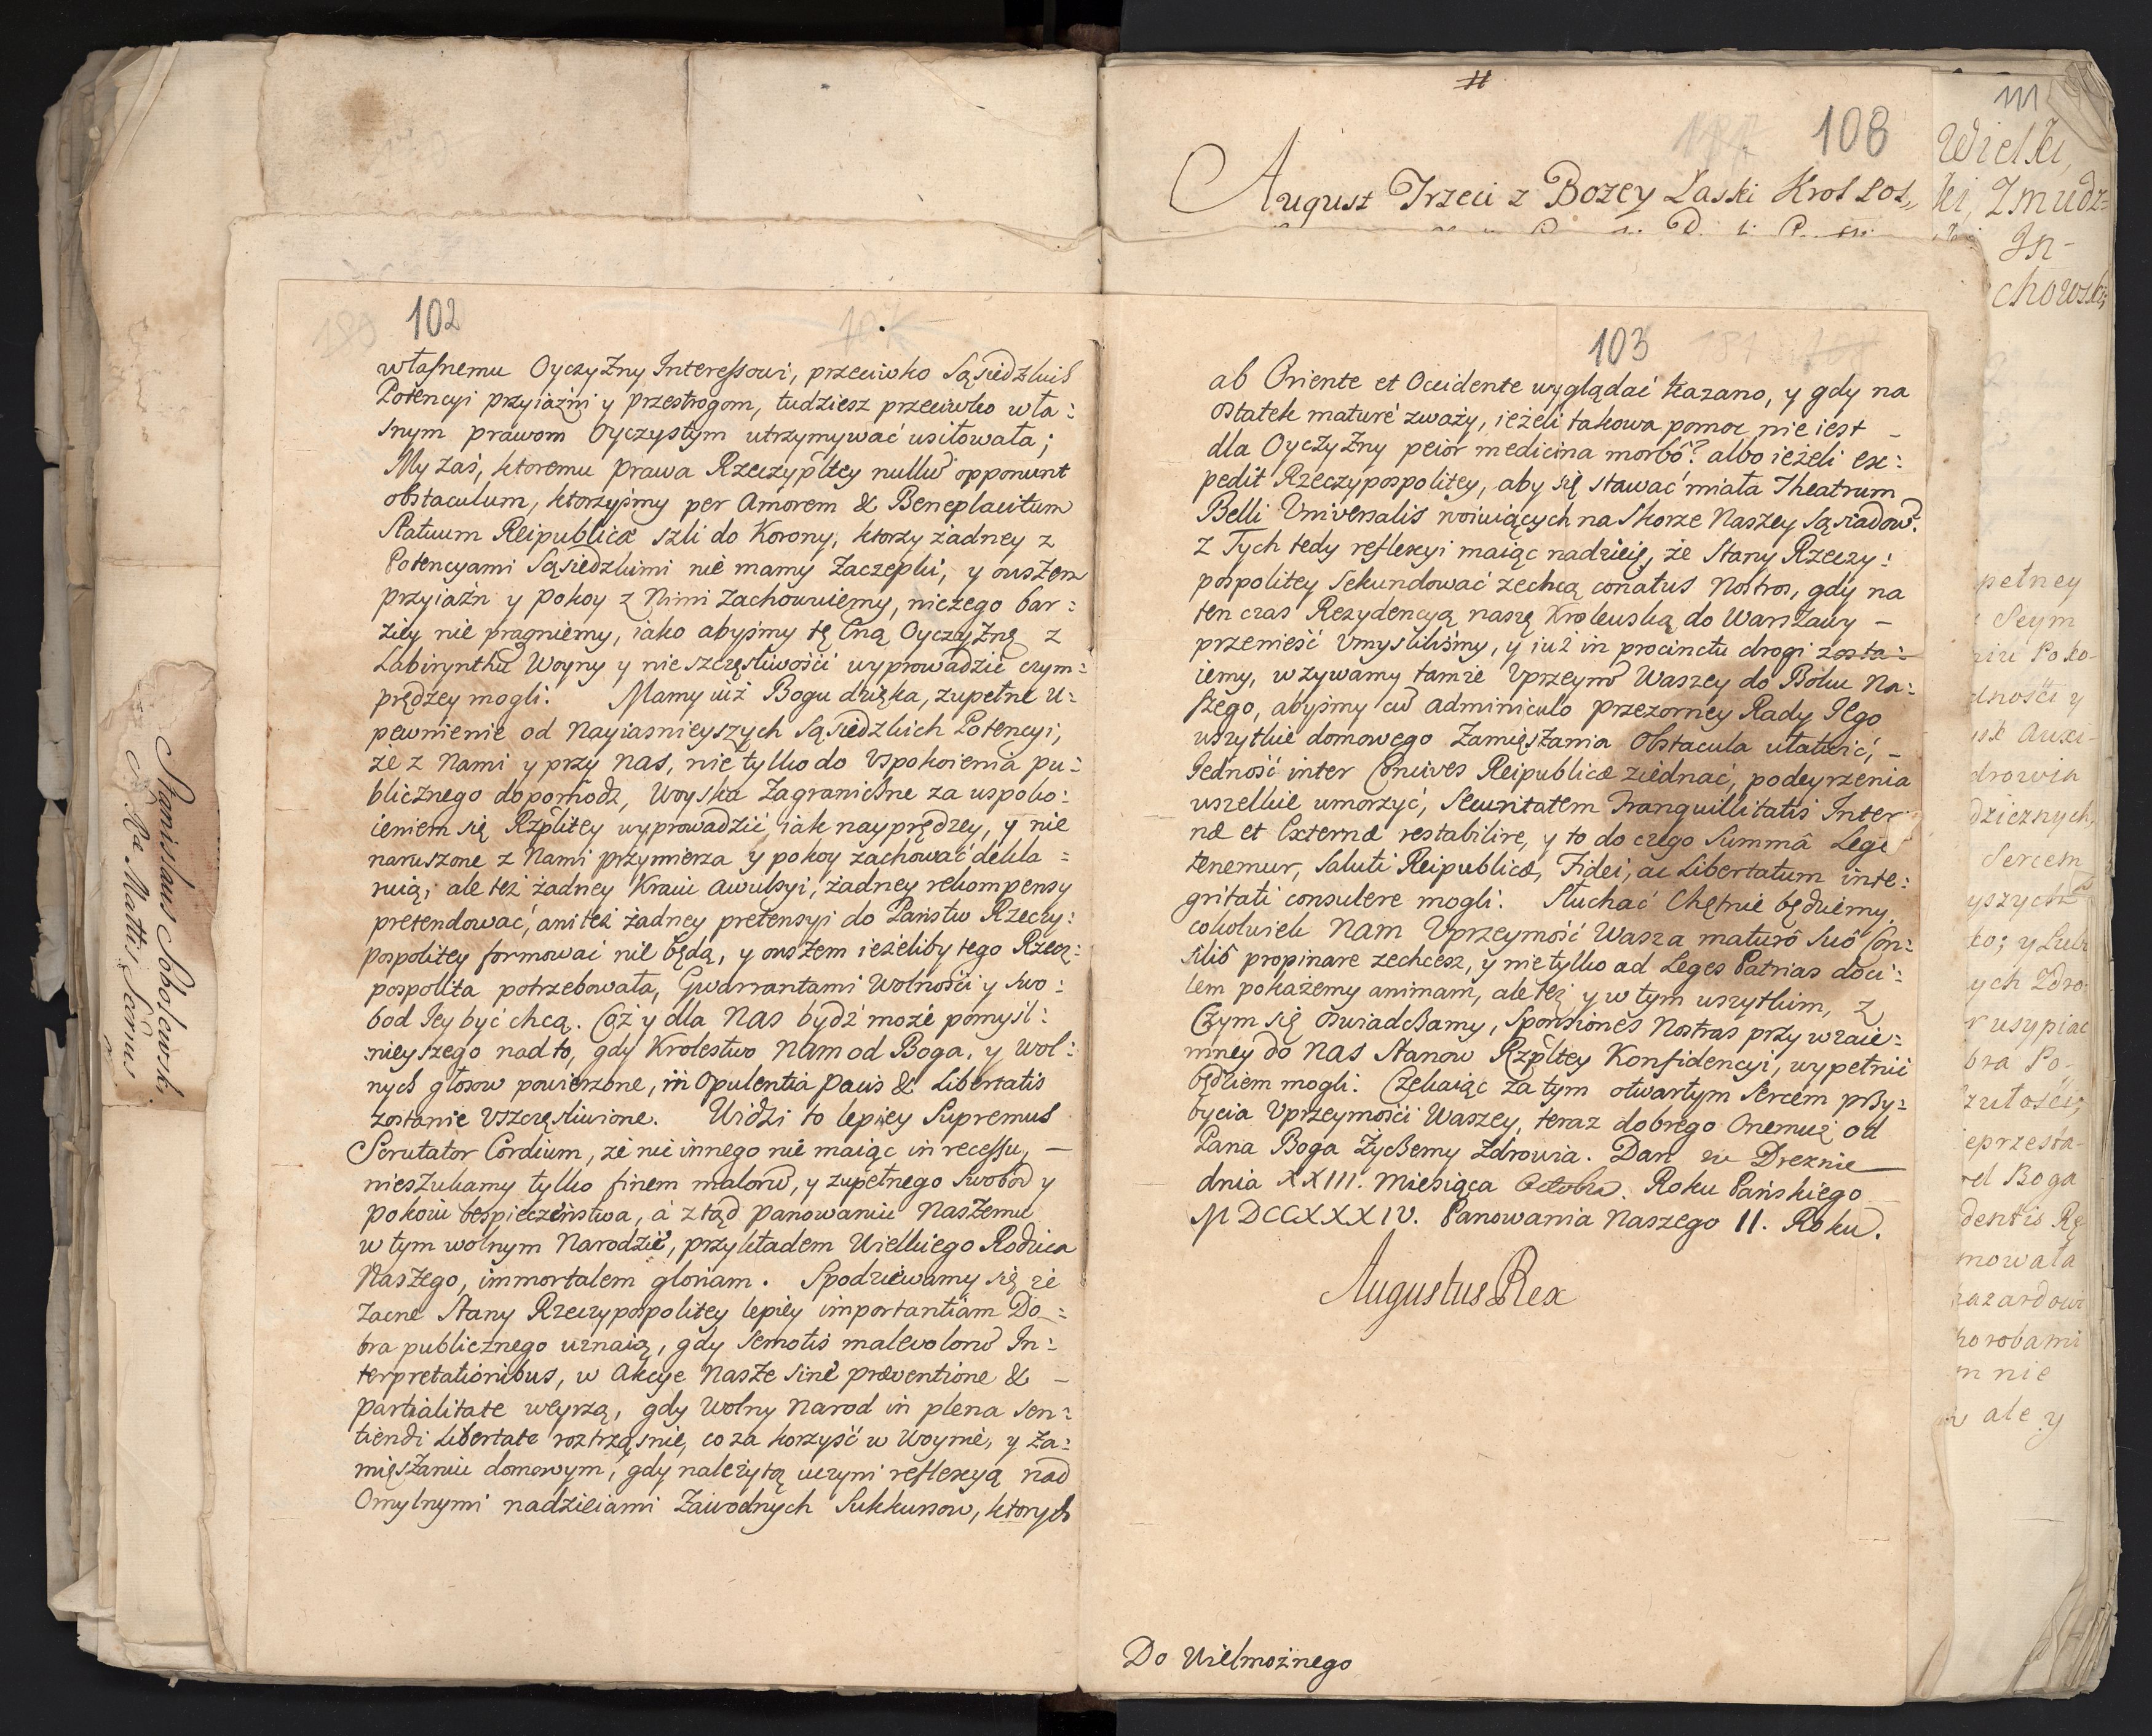 102
własnemu Oyczyzny Interessowi, przeciwko Sąsiedzkich
Potencyi przyiaźni y przestrogom, tudziesz przeciwko wła:
snym prawom Oyczystym utrzymywać usiłowała;
My zaś, ktoremu prawa Rzeczypltey nullū opponunt
obstaculum, ktorzyśmy per Amorem & Beneplacitum
Statuum Reipublicæ szli do Korony, ktorzy żadney z
Potencyami Sąsiedzkimi nie mamy Zaczepki, y owszem
przyiaźn y pokoy z Nimi zachowuiemy, niczego bar:
ziey nie pragniemy, iako abyśmy tę Cną Oyczyznę z
Labirynthu Woyny y nieszczęsliwości wyprowadzić czym:
prędzey mogli. Mamy iuż Bogu dzięka, zupełne u:
pewnienie od Nayiasnieyszych Sąsiedzkich Potencyi,
że z Nami y przy nas, nie tylko do Uspokoienia pu:
blicznego dopomodz, Woyska Zagraniczne za uspoko:
ieniem się Rzpltey wyprowadzić, iak nayprędzey, y nie
naruszone z Nami przymierza y pokoy zachować dekla:
ruią, ale też żadney Kraiu awulsyi, żadney rekompensy
pretendować, ani też żadney pretensyi do Państw Rzeczy:
pospolitey formować nie będą, y owszem ieżeliby tego Rzecz:
pospolita potrzebowała, Gwarrantami Wolności y swo:
bod Jey być chcą. Coż y dla Nas bydź może pomysl:
nieyszego nad to, gdy Krolestwo Nam od Boga, y wol:
nych głosow powierzone, in Opulentia Pacis & Libertatis
zostanie Uszczęsliwione. Widzi to lepiey Supremus
Scrutator Cordium, że nic innego nie maiąc in recessu, –
nieszukamy tylko finem malorū, y zupełnego Swobod y
pokoiu bespieczeństwa, á ztąd panowaniu Naszemu
w tym wolnym Narodzie, przykładem Wielkiego Rodzica
Naszego, immortalem gloriam. Spodziewamy się że
Zacne Stany Rzeczypospolitey lepiey importantiam Do:
bra publicznego uznaią, gdy semotis malevolorū In:
terpretationibus, w Akcye Nasze sine præventione & –
partialitate weyrzą, gdy Wolny Narod in plena sen:
tiendi Libertate roztrząsnie, co za korzyść w Woynie, y Za:
mięszaniu domowym, gdy należytą uczyni reflexyą nad
Omylnymi nadzieiami Zawodnych Sukkursow, ktorych
108
August Trzeci z Bozey Łaski Krol Pol,,
103
ab Oriente et Occidente wyglądać kazano, y gdy na
ostatek maturé zważy, ieżeli takowa pomoc nie iest –
dla Oyczyzny peior medicina morbô? albo ieżeli ex:
pedit Rzeczypospolitey, aby się stawać miała Theatrum
Belli Universalis woiuiących na Skorze Naszey Sąsiadow.
Z Tych tedy reflexyi maiąc nadzieię, że Stany Rzeczy:
pospolitey Sekundować zechcą conatus Nostros, gdy na
ten czas Rezydencyą naszę Krolewską do Warszawy –
przenieść Umyslilismy, y iuż in procinctu drogi zosta:
iemy, wzywamy tamże Uprzeymość Waszey do Boku Na:
szego, abyśmy cū adminiculo przezorney Rady Jego
wszytkie domowego Zamięszania Obstacula ułatwić, –
Jedność inter Concives Reipublicæ ziednać, podeyrzenia
wszelkie umorzyć, Securitatem Tranquillitatis Inter:
næ et Externæ restabilire, y to do czego Summâ Lege
tenemur, Saluti Reipublicæ, Fidei, ac Libertatum inte:
gritati consulere mogli. Słuchać Chętnie będziemy
cokolwiek Nam Uprzeymość Wasza maturô Suô Con:
siliô propinare zechcesz, y nie tylko ad Leges Patrias doci:
lem pokażemy animam, ale też y w tym wszytkim, z
Czym się oświadczamy, Sponsiones Nostras przy wzaie:
mney do nas Stanow Rzpltey Konfidencyi, wypełnić
będziem mogli. Czekaiąc Za tym otwartym Sercem przy:
bycia Uprzeymości Waszey, teraz dobrego Onemuż od
Pana Boga Życzemy Zdrowia. Dan w Dreznie
dnia XXIII. Miesiąca Octobra. Roku Pańskiego
MDCCXXXIV. Panowania Naszego II. Roku.
Augustus Rex
Do Wielmożnego
Stanislaus Sobolewski,
S. Ræ Mattis Sæcrius
111
Wielki,
ki, Zmudz=
In-
chowski
pełney
Seym
Poko-
dności y
Auxi-
drowia
dzięcznych,
Sercem
yszych
ko; y Lub
ych Zdro
usypiać
bra Po-
zułości,
ieprzesta-
Boga
dentis Rę
mowała
hazardow
horobami
m nie
ale y